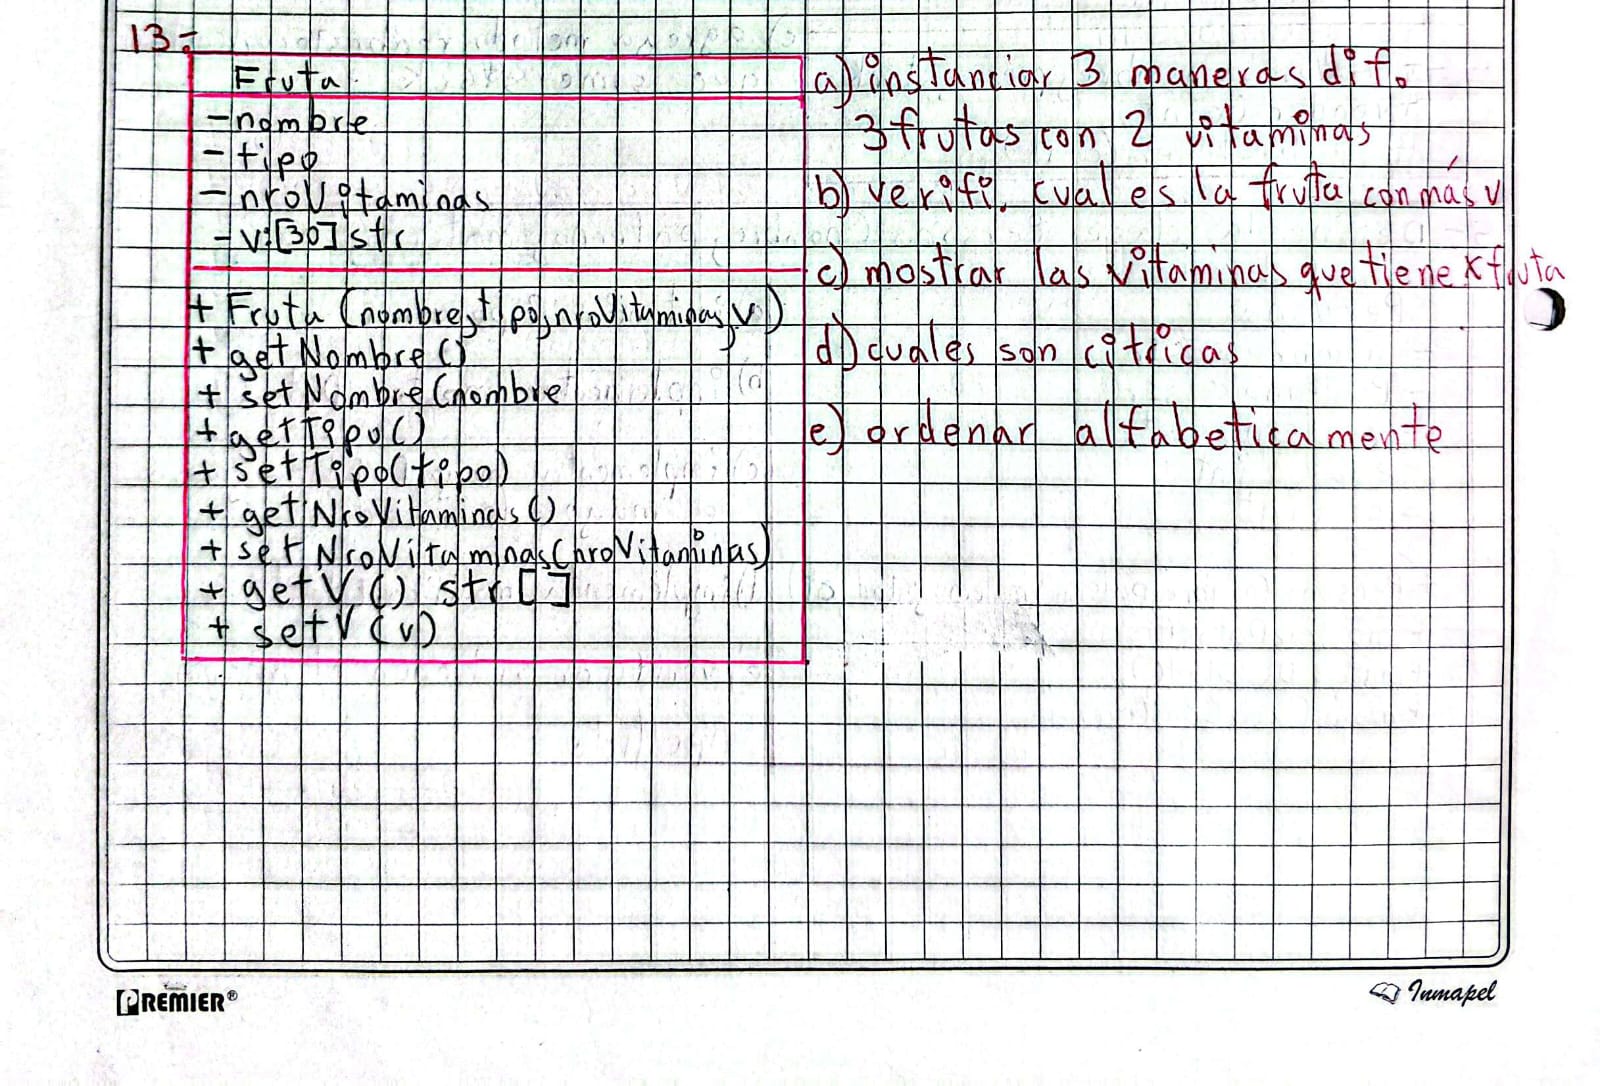 13-
Fruta
- nombre
- tipo
- nroVitaminas
- v:[30] str
+ Fruta (nombre,tipo,nroVitaminas,v)
+ getNombre()
+ setNombre(nombre
+ getTipo()
+ setTipo(tipo)
+ getNroVitaminas()
+ setNroVitaminas(nroVitaminas)
+ getV() str[]
+ setV(v)
a) instanciar 3 maneras dif.
3 frutas con 2 vitaminas
b) verifi. cual es la fruta con más v
c) mostrar las vitaminas que tiene x fruta
d) cuales son citricas
e) ordenar alfabeticamente
PREMIER®
Inmapel